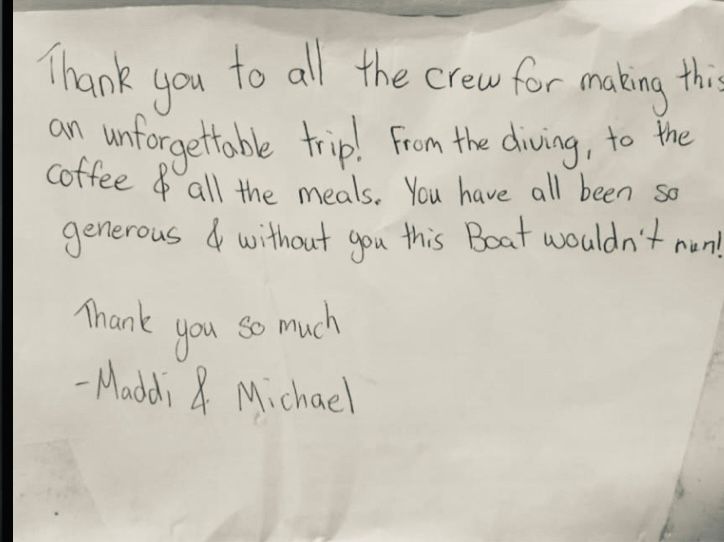 Thank you to all the crew for making this
an unforgettable trip! From the diving, to the
coffee & all the meals. You have all been so
generous & without you this Boat wouldn't run!
Thank you so much
-Maddi & Michael